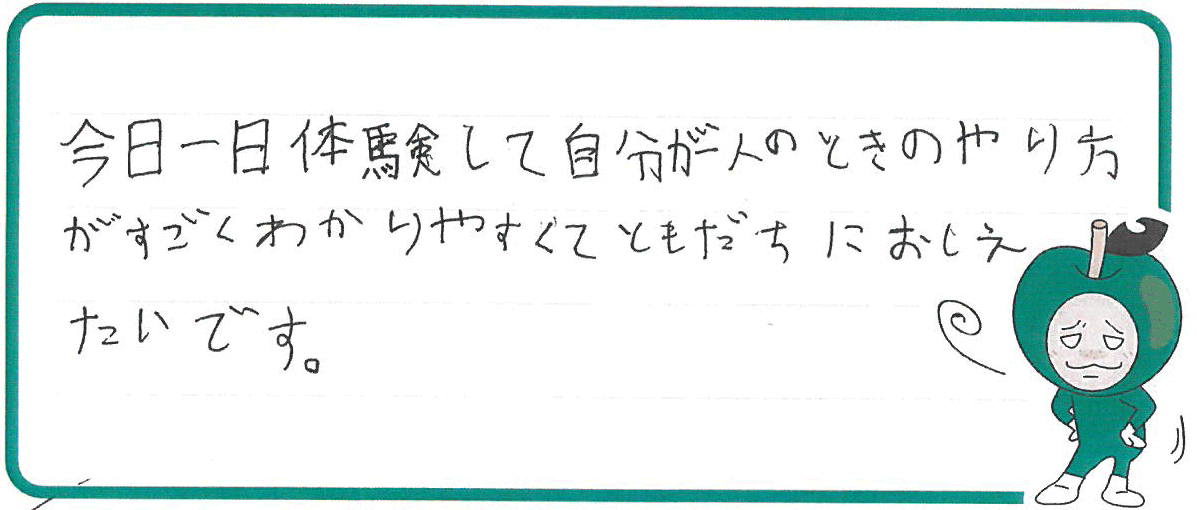 今日一日体験して自分が一人のときのやり方
がすごくわかりやすくてともだちにおしえ
たいです。